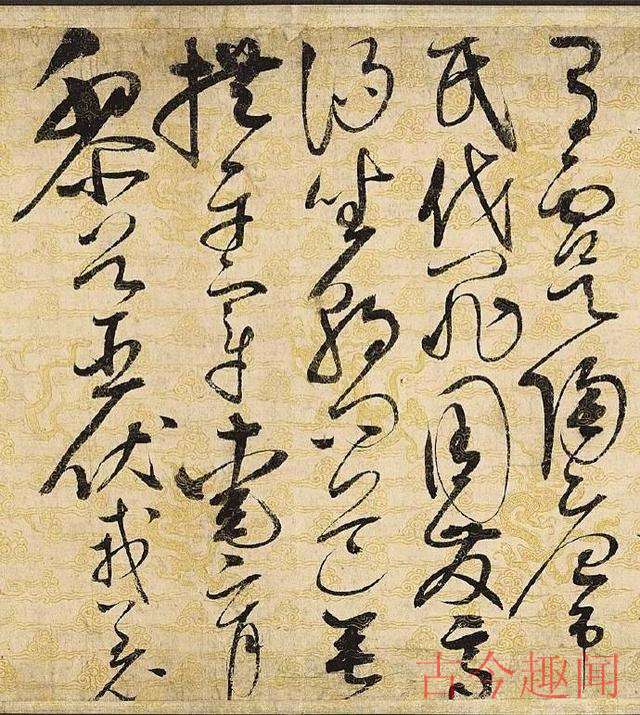 有虞陶唐弔
民伐罪周發商
湯坐朝問道垂
拱平章愛育
黎首臣伏戎羌
古今趣闻